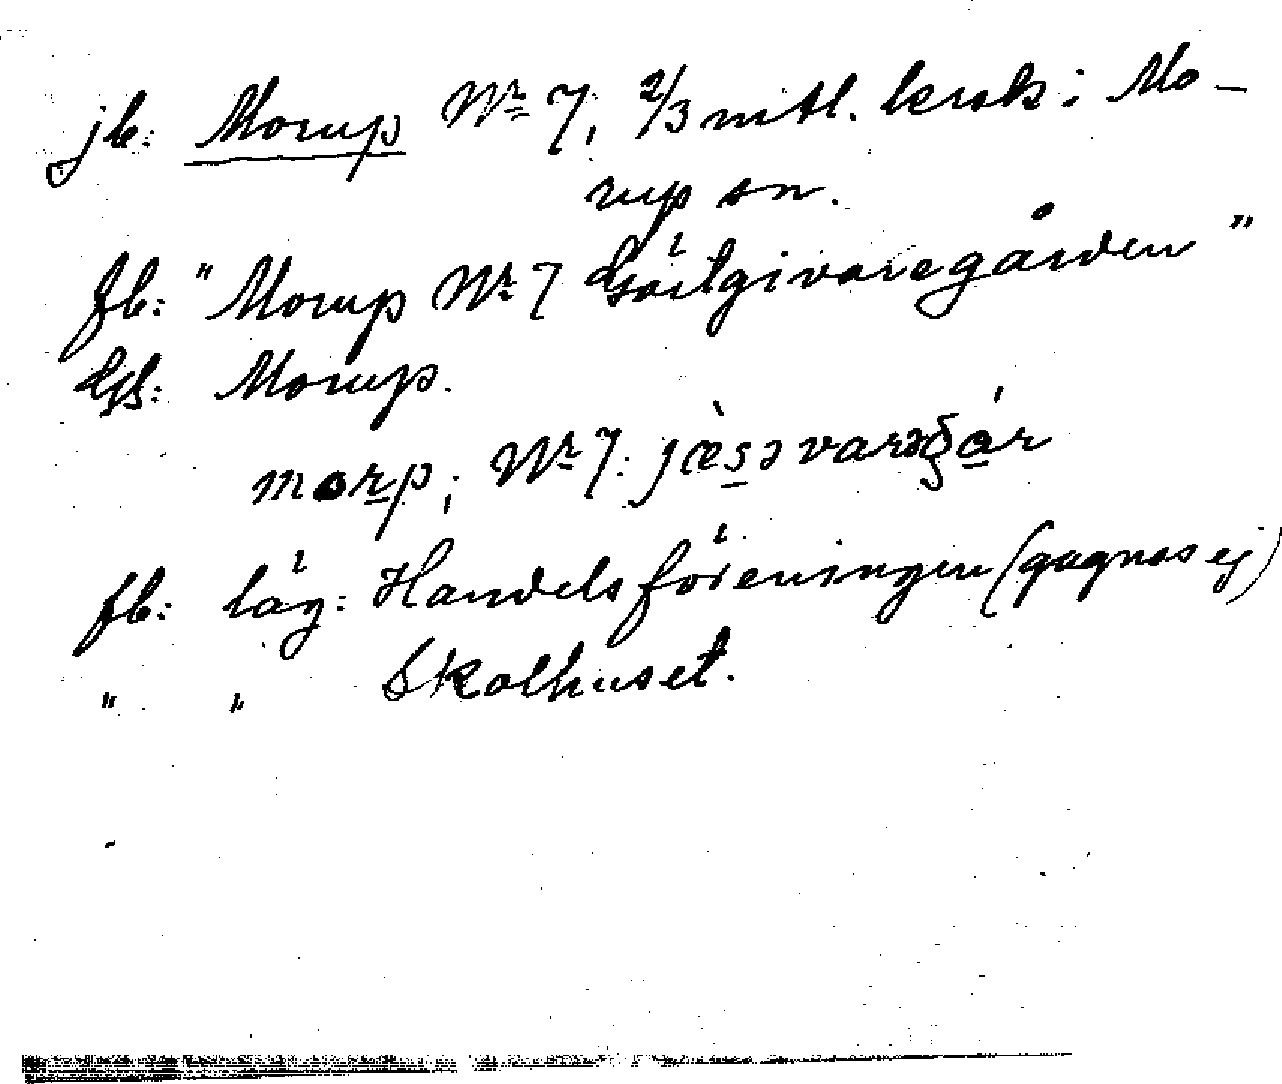 jb: Morup Nr 7, 2/3 mtl. krsk i Mo-
rup sn.
fb: "Morup Nr 7 Gästgivaregården"
Gs: Morup.
morp; Nr 7:
fb: läg: Handelsföreningen (gagnas ej)
" " Skolhuset.